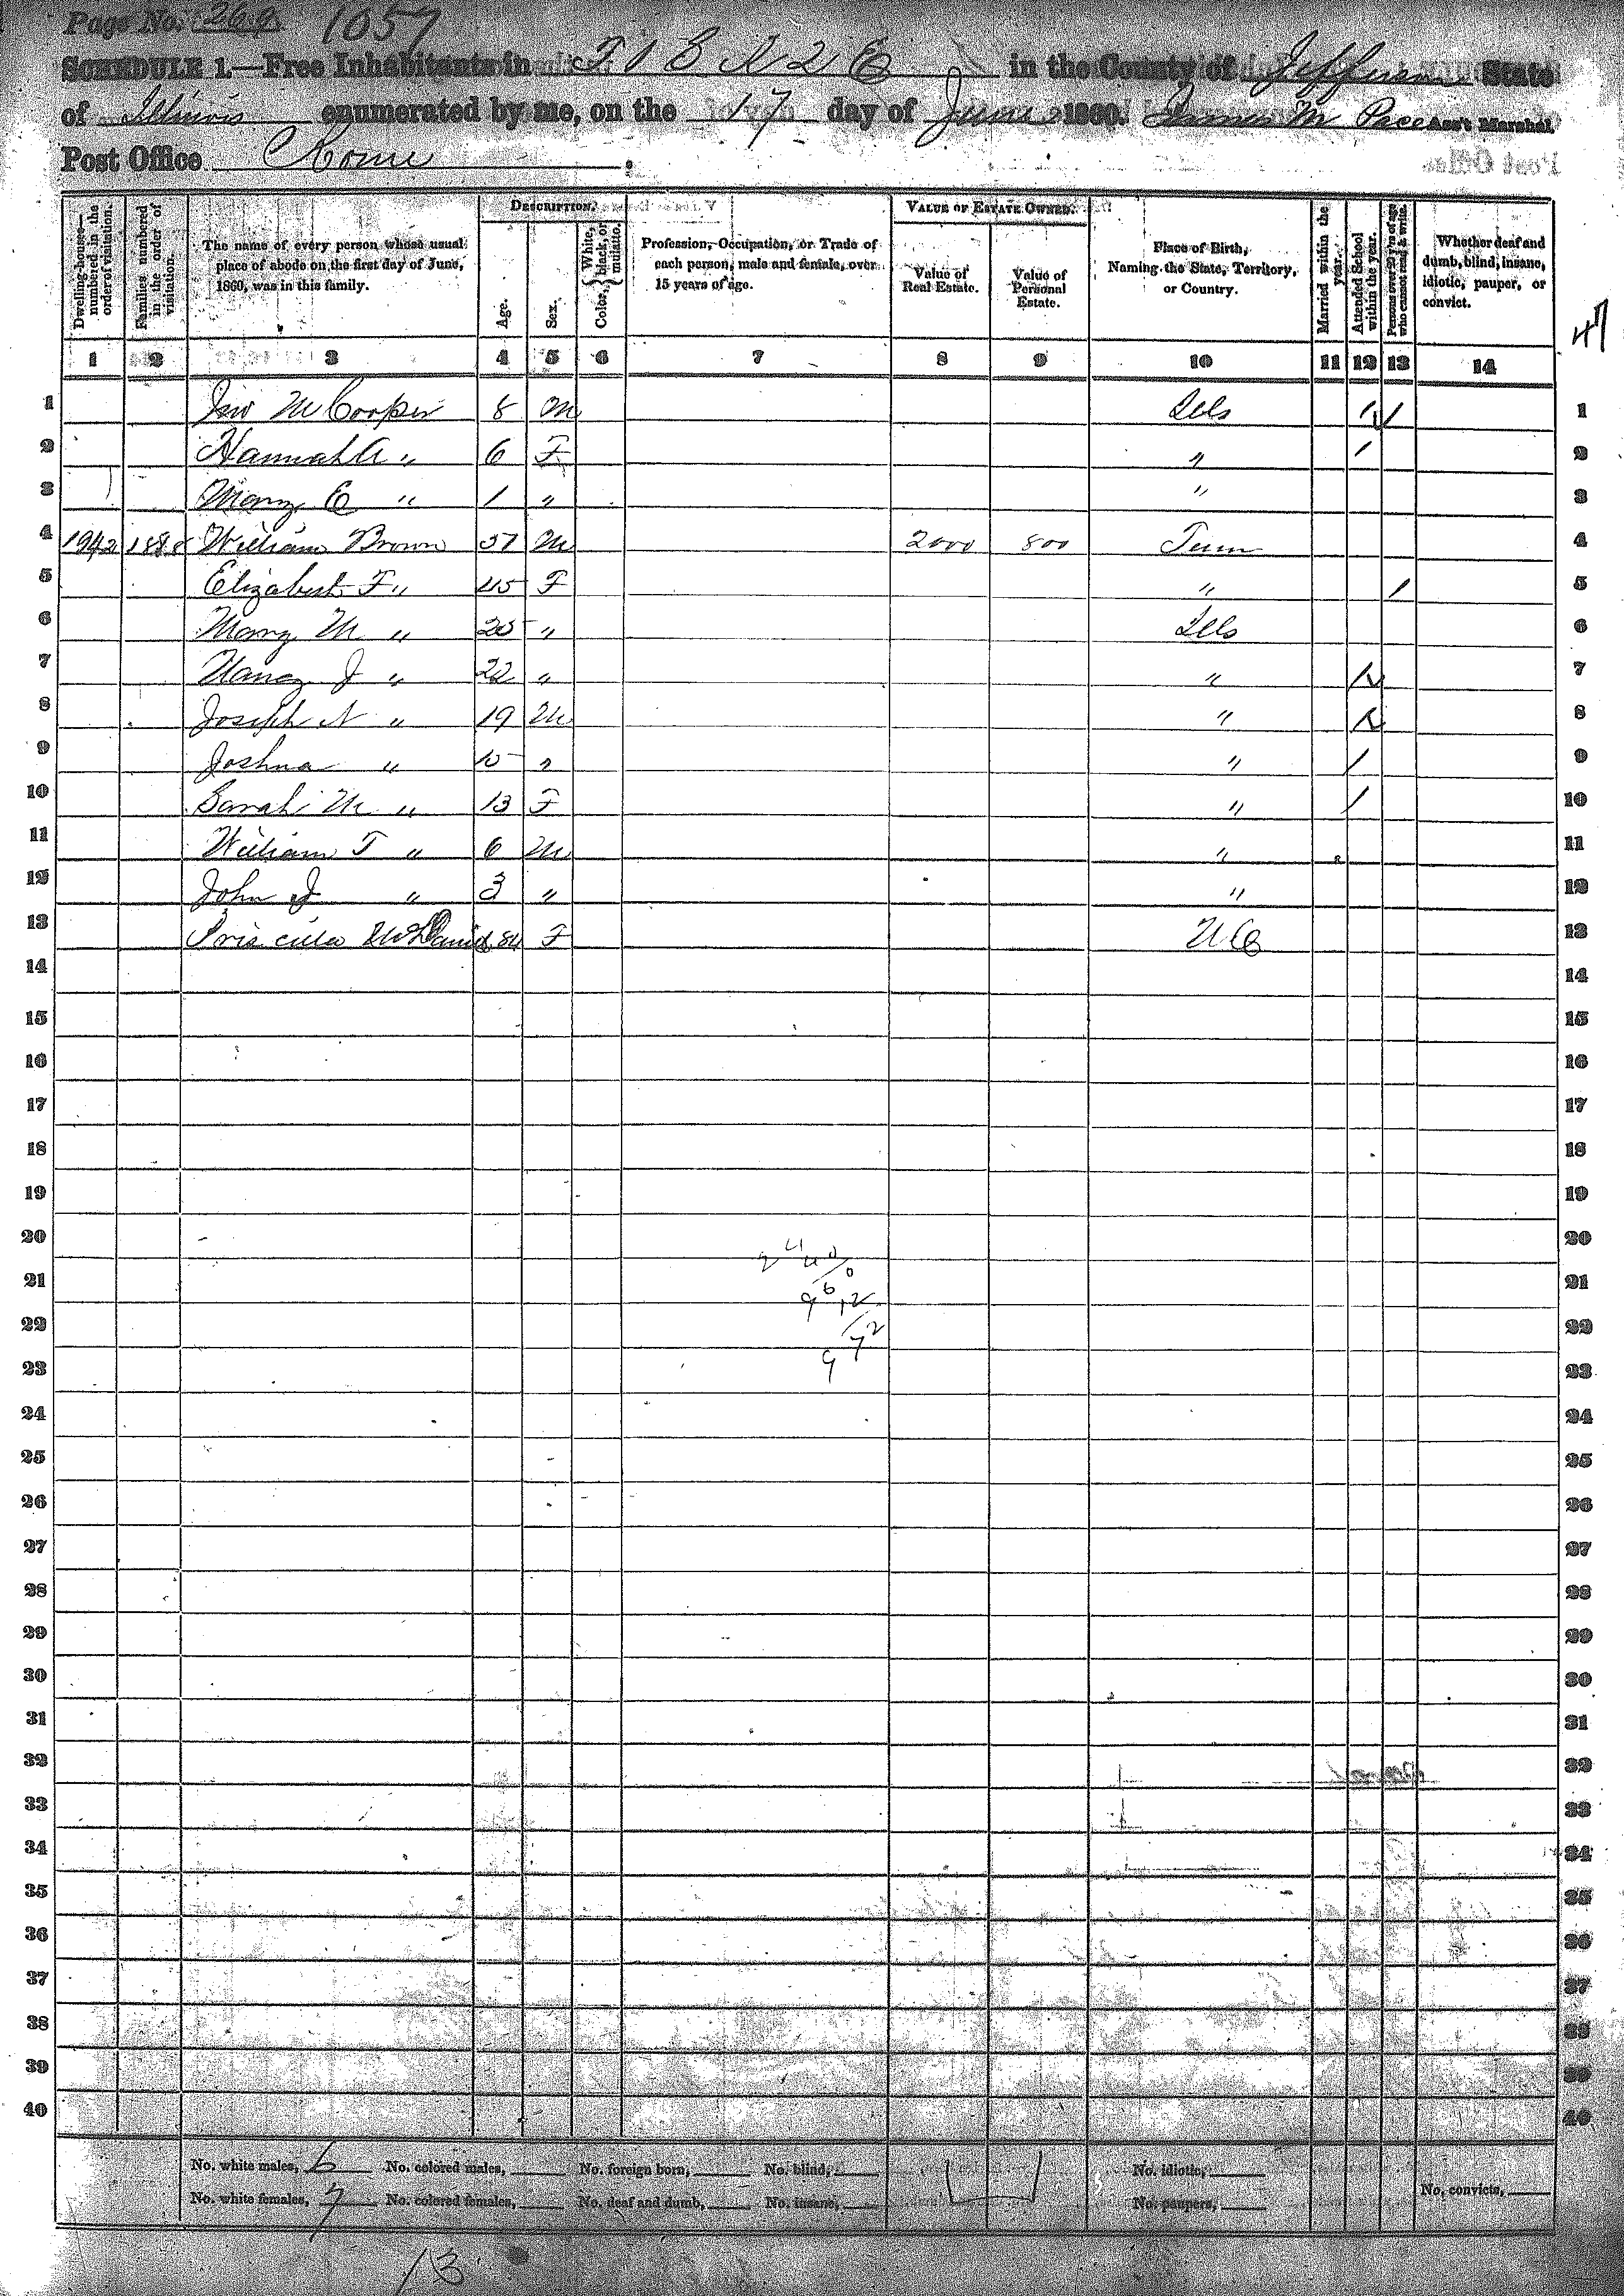 Page No. 269 1057
SCHEDULE 1.—Free Inhabitants in T 1 S R 2 E in the County of Jefferson State
of Illinois enumerated by me, on the 17 day of June 1860. James M Pace Ass't Marshal
Post Office Rome
DESCRIPTION. VALUE OF ESTATE OWNED.
Dwelling-houses—numbered in the order of visitation. Families numbered in the order of visitation. The name of every person whose usual place of abode on the first day of June, 1860, was in this family. Age. Sex. Color, { White, black, or mulatto. Profession, Occupation, or Trade of each person, male and female, over 15 years of age. Value of Real Estate. Value of Personal Estate. Place of Birth, Naming the State, Territory, or Country. Married within the year. Attended School within the year. Persons over 20 y'rs of age who cannot read & write. Whether deaf and dumb, blind, insane, idiotic, pauper, or convict.
47
1 2 3 4 5 6 7 8 9 10 11 12 13 14
1 Jno M Cooper 8 M Ills / / 1
2 Hannah A " 6 F " / 2
3 Mary E " 1 " " 3
4 1942 1888 William Brown 57 M 2000 800 Tenn 4
5 Elizabeth F " 45 F " / 5
6 Mary M " 25 " Ills 6
7 Nancy J " 22 " " / 7
8 Joseph N " 19 M " / 8
9 Joshua " 15 " " / 9
10 Sarah M " 13 F " / 10
11 William T " 6 M " 11
12 John J " 3 " " 12
13 Priscilla McDaniel 84 F N C 13
14 14
15 15
16 16
17 17
18 18
19 19
20 20
21 21
22 22
23 23
24 24
25 25
26 26
27 27
28 28
29 29
30 30
31 31
32 32
33 33
34 34
35 35
36 36
37 37
38 38
39 39
40 40
No. white males, 6 No. colored males, No. foreign born, No. blind, No. idiotic,
No. white females, 7 No. colored females, No. deaf and dumb, No. insane, No. paupers, No. convicts,
13